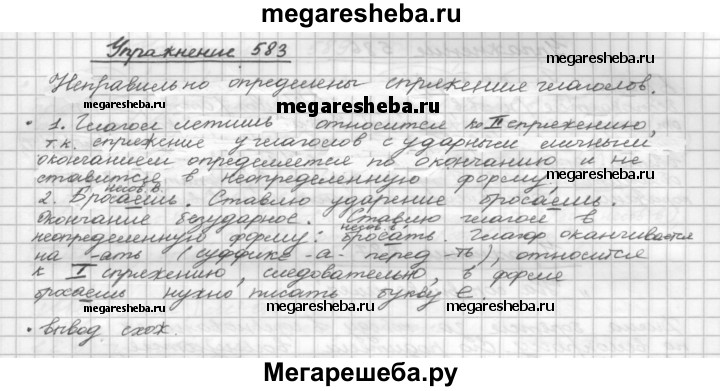 megaresheba.ru
Упражнение 583
megaresheba.ru megaresheba.ru
Неправильно определены спряжения глаголов.
megaresheba.ru
• 1. Глагол летишь относится ко II спряжению,
т.к. спряжение у глаголов с ударными личными
окончанием определяется по окончанию и не
ставится в неопределенную форму.
megaresheba.ru megaresheba.ru
несов. в.
2. Бросаешь. Ставлю ударение бросаешь.
Окончание безударное. Ставлю глагол в
несов. в.
неопределенную форму: бросать. Глагол оканчивается
на -ать (суффикс -а- перед -ть), относится
megaresheba.ru
к I спряжению, следовательно, в форме
бросаешь нужно писать букву е
megaresheba.ru megaresheba.ru
• вывод схож.
Мегарешеба.ру